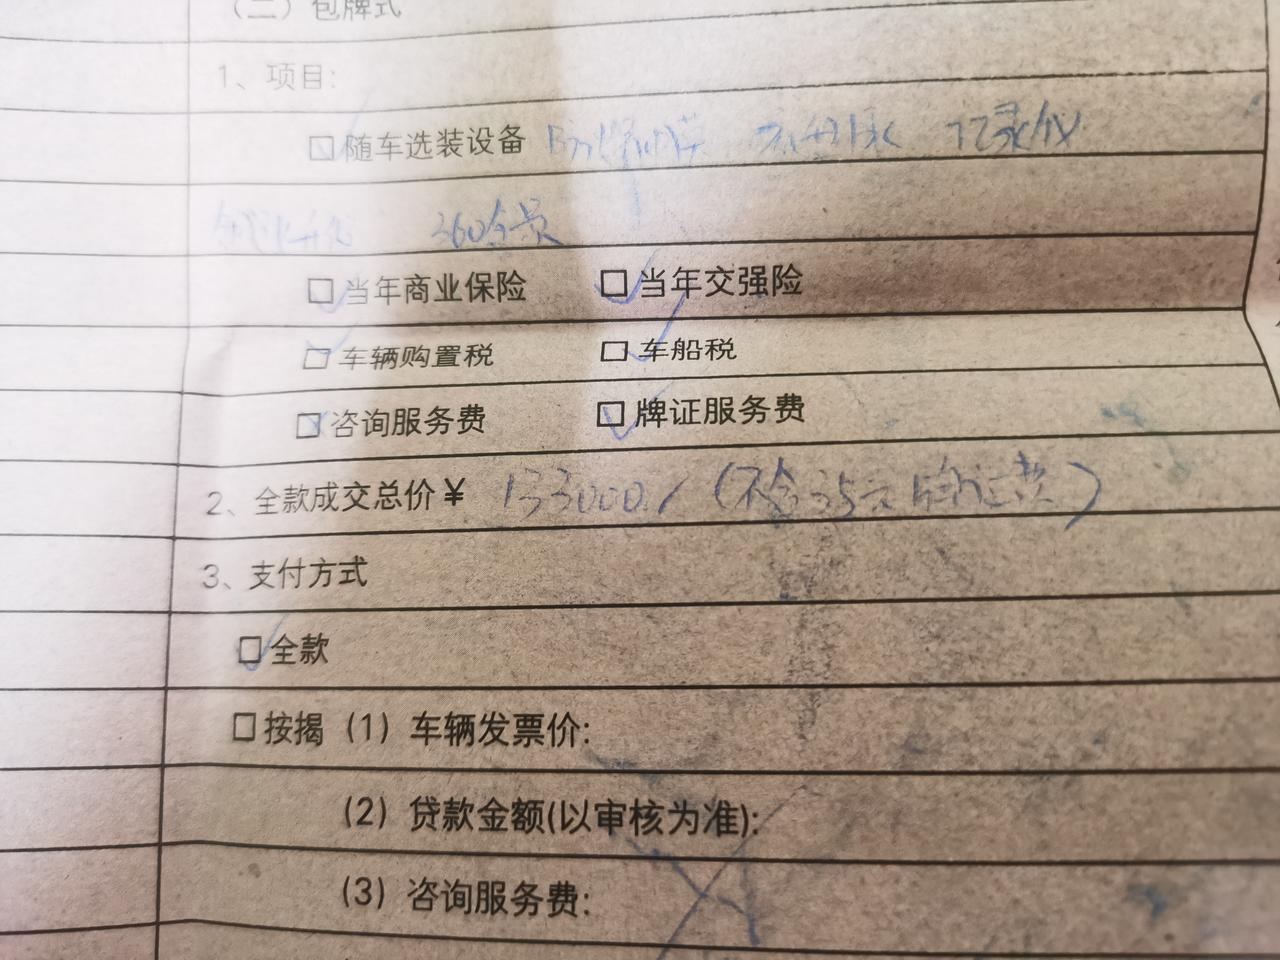 （二）包牌式
1、项目:
☑随车选装设备 防爆膜 记录仪
360全景
☑当年商业保险 ☑当年交强险
☑车辆购置税 ☑车船税
☑咨询服务费 ☑牌证服务费
2、全款成交总价￥ 133000./（不含35元牌证费）
3、支付方式
☑全款
□按揭（1）车辆发票价:
（2）贷款金额(以审核为准):
（3）咨询服务费: